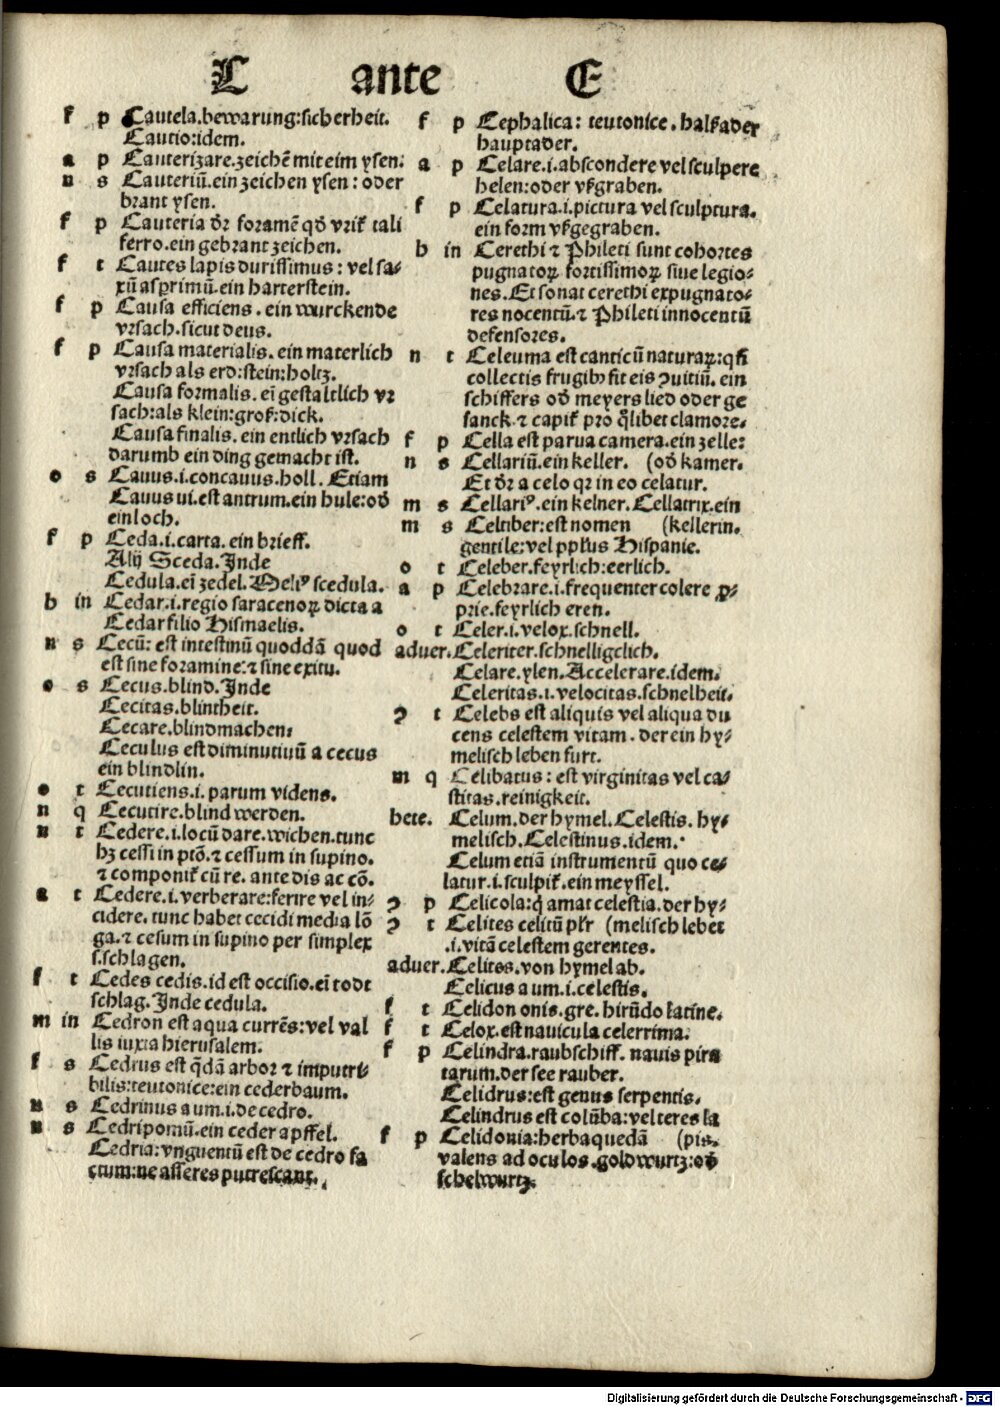 C ante E
f p Cautela.bewarung:sicherheit.
Cautio:idem.
a p Cauterizare.zeichē mit eim ysen:
n s Cauteriū.ein zeichen ysen: oder
brant ysen.
f p Cauteria dr̄ foramē qđ vrit᷑ tali
ferro.ein gebrant zeichen.
f t Cautes lapis durissimus: vel sa⸗
xū asꝑrimū.ein harterstein.
f p Causa efficiens. ein wurckende
vrsach.sicut deus.
f p Causa materialis. ein materlich
vrsach als erd:stein:holtz.
Causa formalis. eī gestaltlich vr
sach:als klein:groß:dick.
Causa finalis. ein entlich vrsach
darumb ein ding gemacht ist.
o s Cauus.i.concauus.holl. Etiam
Cauus ui.est antrum.ein hule:ođ
ein loch.
f p Ceda.i.carta. ein brieff.
Alij Sceda.Inde
Cedula.eī zedel.Meliꝰ scedula.
b in Cedar.i.regio saracenoꝝ dicta a
Cedar filio Hismaelis.
n s Cecū: est intestinū quoddā quod
est sine foramine:⁊ sine exitu.
o s Cecus.blind.Inde
Cecitas.blintheit.
Cecare.blind machen:
Ceculus est diminutiuū a cecus
ein blindlin.
o t Cecutiens.i.parum videns.
n q Cecutire.blind werden.
n t Cedere.i.locū dare.wichen.tunc
hꝫ cessi in ptō.⁊ cessum in supino.
⁊ componit᷑ cū re. ante dis ac cō.
a t Cedere.i.verberare:ferire vel in⸗
cidere.tunc habet cecidi media lō
ga.⁊ cesum in supino per simplex
s.schlagen.
f t Cedes cedis.id est occisio.eī todt
schlag.Inde cedula.
m in Cedron est aqua currēs:vel val
lis iuxta hierusalem.
f s Cedrus est q̄dā arbor ⁊ imputri⸗
bilis:teutonice:ein cederbaum.
n s Cedrinus a um.i.de cedro.
n s Cedripomū.ein ceder apffel.
Cedria:vnguentū est de cedro fa
ctum:ne asseres putrescant.
f p Cephalica: teutonice. halßader
hauptader.
a p Celare.i.abscondere vel sculpere
helen:oder vßgraben.
f p Celatura.i.pictura vel sculptura.
ein form vßgegraben.
b in Cerethi ⁊ Phileti sunt cohortes
pugnatoꝝ fortissimoꝝ siue legio⸗
nes. Et sonat cerethi expugnato⸗
res nocentū.⁊ Phileti innocentū
defensores.
n t Celeuma est canticū naturaꝝ:qn̄
collectis frugibꝰ fit eis ꝯuitiū. ein
schiffers ođ meyers lied oder ge
sanck.⁊ capit᷑ pro q̄libet clamore.
f p Cella est parua camera.ein zelle:
n s Cellariū.ein keller. (ođ kamer.
Et dr̄ a celo qr in eo celatur.
m s Cellariꝰ.ein kelner. Cellatrix.ein
m s Celtiber:est nomen (kellerin.
gentile:vel ppl̄us Hispanie.
o t Celeber.feyrlich:eerlich.
a p Celebrare.i.frequenter colere ꝓ⸗
prie.feyrlich eren.
o t Celer.i.velox.schnell.
aduer.Celeriter.schnelligclich.
Celare.ylen.Accelerare.idem.
Celeritas.i.velocitas.schnelheit.
ꝯ t Celebs est aliquis vel aliqua du
cens celestem vitam. der ein hy⸗
melisch leben furt.
m q Celibatus: est virginitas vel ca⸗
stitas.reinigkeit.
hete. Celum.der hymel. Celestis. hy⸗
melisch.Celestinus.idem.
Celum etiā instrumentū quo ce⸗
latur.i.sculpit᷑.ein meyssel.
ꝯ p Celicola:q̄ amat celestia.der hy⸗
ꝯ t Celites celitū pl̄r (melisch lebet
.i.vitā celestem gerentes.
aduer.Celitos.von hymel ab.
Celicus a um.i.celestis.
f t Celidon onis.gre. hirūdo latine.
f t Celox.est nauicula celerrima.
f p Celindra.raubschiff. nauis pira
tarum.der see rauber.
Celidrus:est genus serpentis.
Celindrus est colūba:vel teres la
f p Celidonia:herba quedā (pis.
valens ad oculos.goldwurtz:ođ
schelwurtz.
Digitalisierung gefördert durch die Deutsche Forschungsgemeinschaft - DFG